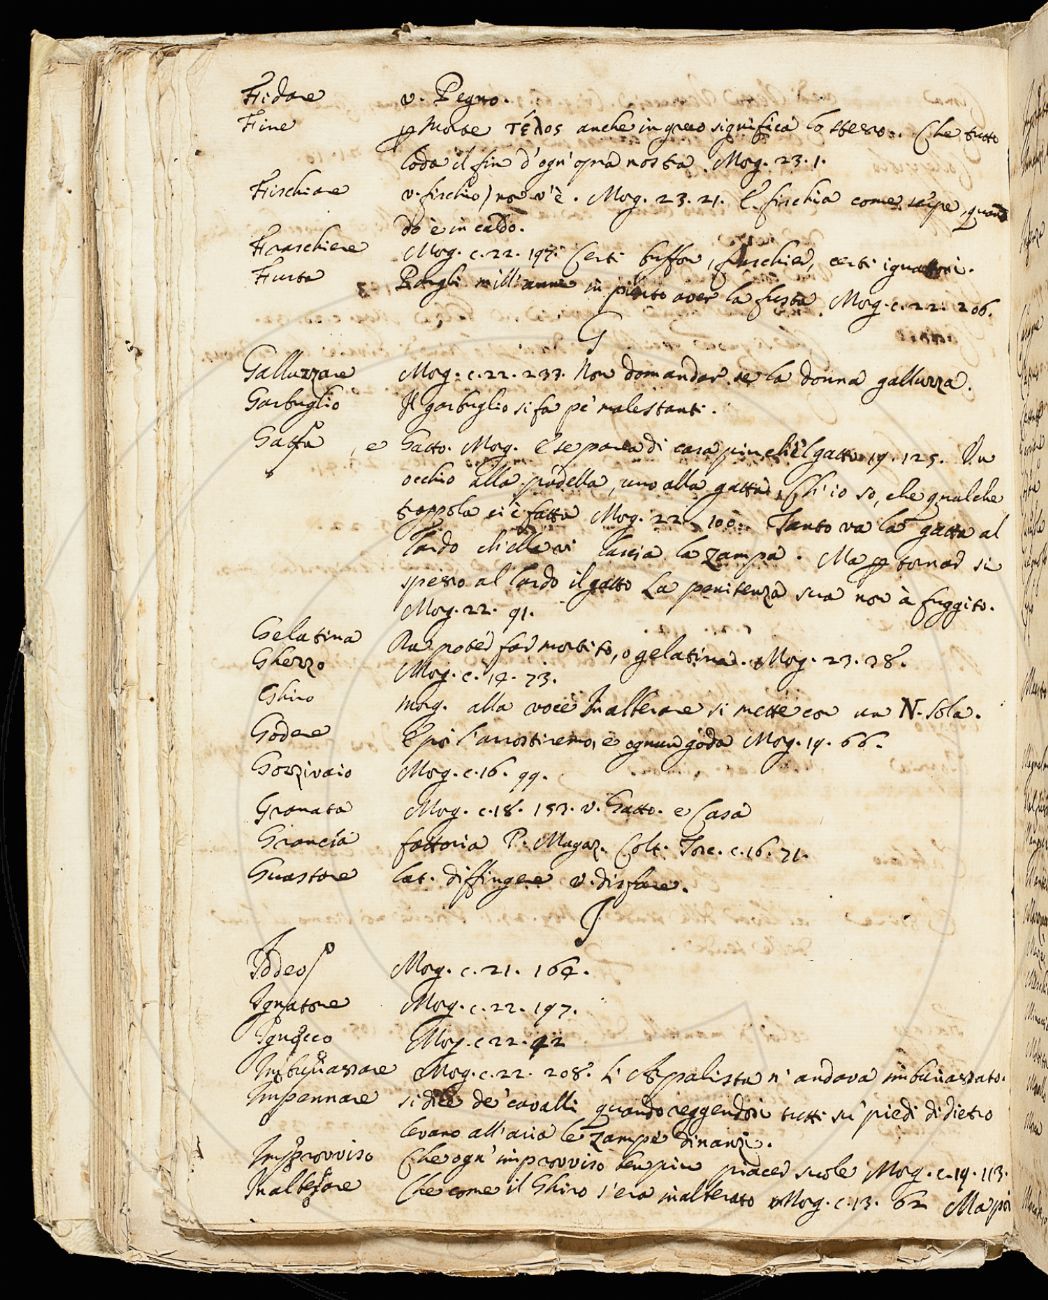 Fidare v. Pegno.
Fine p morte τέλος anche in greco significa lo stesso. Che tutto
loda il fin d'ogn'opra nostra. Morg. 23. 1.
Fischiare v. fischio) non v'è. Morg. 23. 21. E fischia come serpe, quan
do è in caldo.
Fraschiere Morg. c. 22. 197. Certi buffon, fraschier, certi ignatoni.
Fusta Pargli mill'anni in punto aver la fusta. Morg. c. 22. 206.
G
Galluzzare Morg. c. 22. 233. Non domandar se la donna galluzza.
Garbuglio Il garbuglio si fa pe' malestanti.
Gatta, e Gatto. Morg. E se parea di casa più che'l gatto. 19. 125. Un
occhio alla padella, uno alla gatta, Ch'io so, che qualche
trappola ci è fatta Morg. 22. 100. Tanto va la gatta al
lardo ch'ella vi lascia la zampa. Ma p tornar sì
spesso al lardo il gatto La penitenza sua non à fuggito.
Morg. 22. 91.
Gelatina Da poter far mortito, o gelatina. Morg. 23. 38.
Ghezzo Morg. c. 14. 73.
Ghiro morg. alla voce Inalterare si mette con un N. sola.
Godere E poi l'arrostiremo, e ognun goda Morg. 19. 66.
Gorzivaio Morg. c. 16. 99.
Granata Morg. c. 18. 153. v. Gatto. e Casa
Grancia fattoria P. Magaz. Colt. Tosc. c. 16. 71.
Guastare lat. diffingere v. disfare.
I
Iddeo Morg. c. 21. 164.
Ignatone Morg. c. 22. 197.
Ignocco Morg. c. 22. 42
Imburiassare Morg. c. 22. 208. L'Ospalista n'andava imburiassato.
Impennare si dice de' cavalli quando reggendosi tutti su' piedi di dietro
levano all'aria le zampe dinanzi.
Improvviso Che ogn'improvviso ben più piacer suole Morg. c. 19. 113.
Inalberare Che come il Ghiro s'era inalterato Morg. c. 13. 62 Ma poi